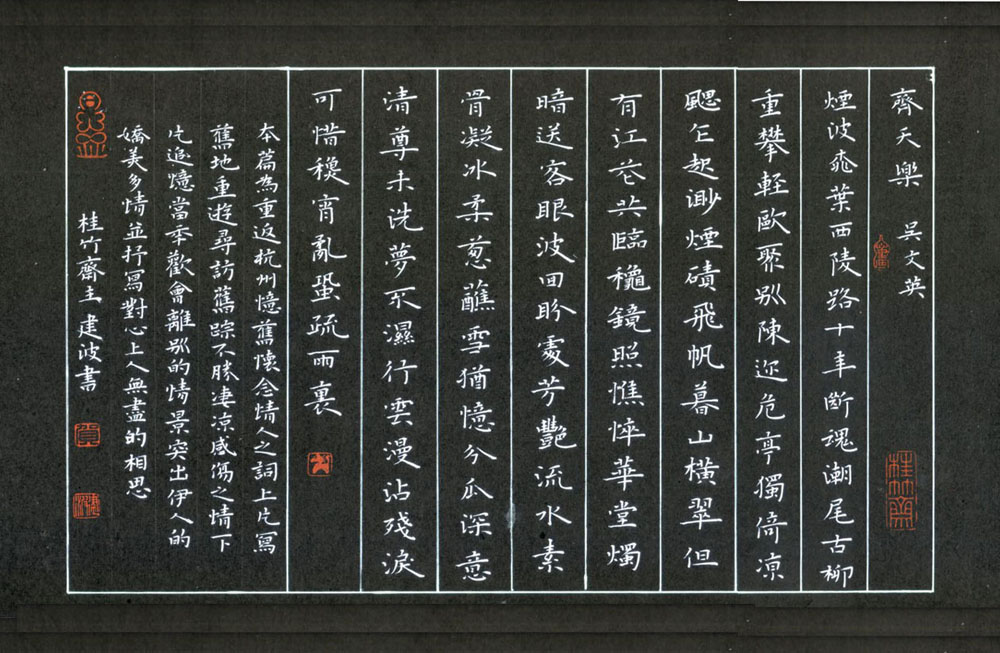 齊天樂 吳文英
煙波桃葉西陵路十年斷魂潮尾古柳
重攀軽歐聚別陳迹危亭獨倚涼
颸乍起渺煙磧飛帆暮山橫翠但
有江花共臨穐鏡照憔悴華堂燭
暗送客眼波回盼處芳艷流水素
骨凝冰柔葱蘸雪猶憶分瓜深意
清尊未洗夢不濕行雲漫沾殘淚
可惜穐宵亂蛩疏雨裏
本篇為重返杭州憶舊懷念情人之詞上片寫
舊地重遊尋訪舊踪不勝凄凉感傷之情下
片追憶當年歡會離別的情景突出伊人的
嬌美多情並抒寫對心上人無盡的相思
桂竹齋主建波書
桂竹齋